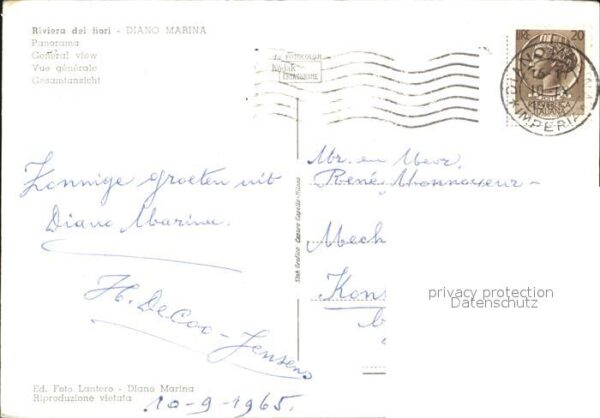 Riviera dei fiori - DIANO MARINA
Panorama
General view
Vue générale
Gesamtansicht
LIRE 20
IMPERIA
Zonnige groeten uit
Diano Marina.
H. DeCoo-Jensens
10-9-1965.
Mr. en Mevr.
René Monnoyeur-
Mech
Kons
privacy protection
Datenschutz
Stab. Grafico Cesare Capello-Milano
Ed. Foto Lantero - Diano Marina
Riproduzione vietata